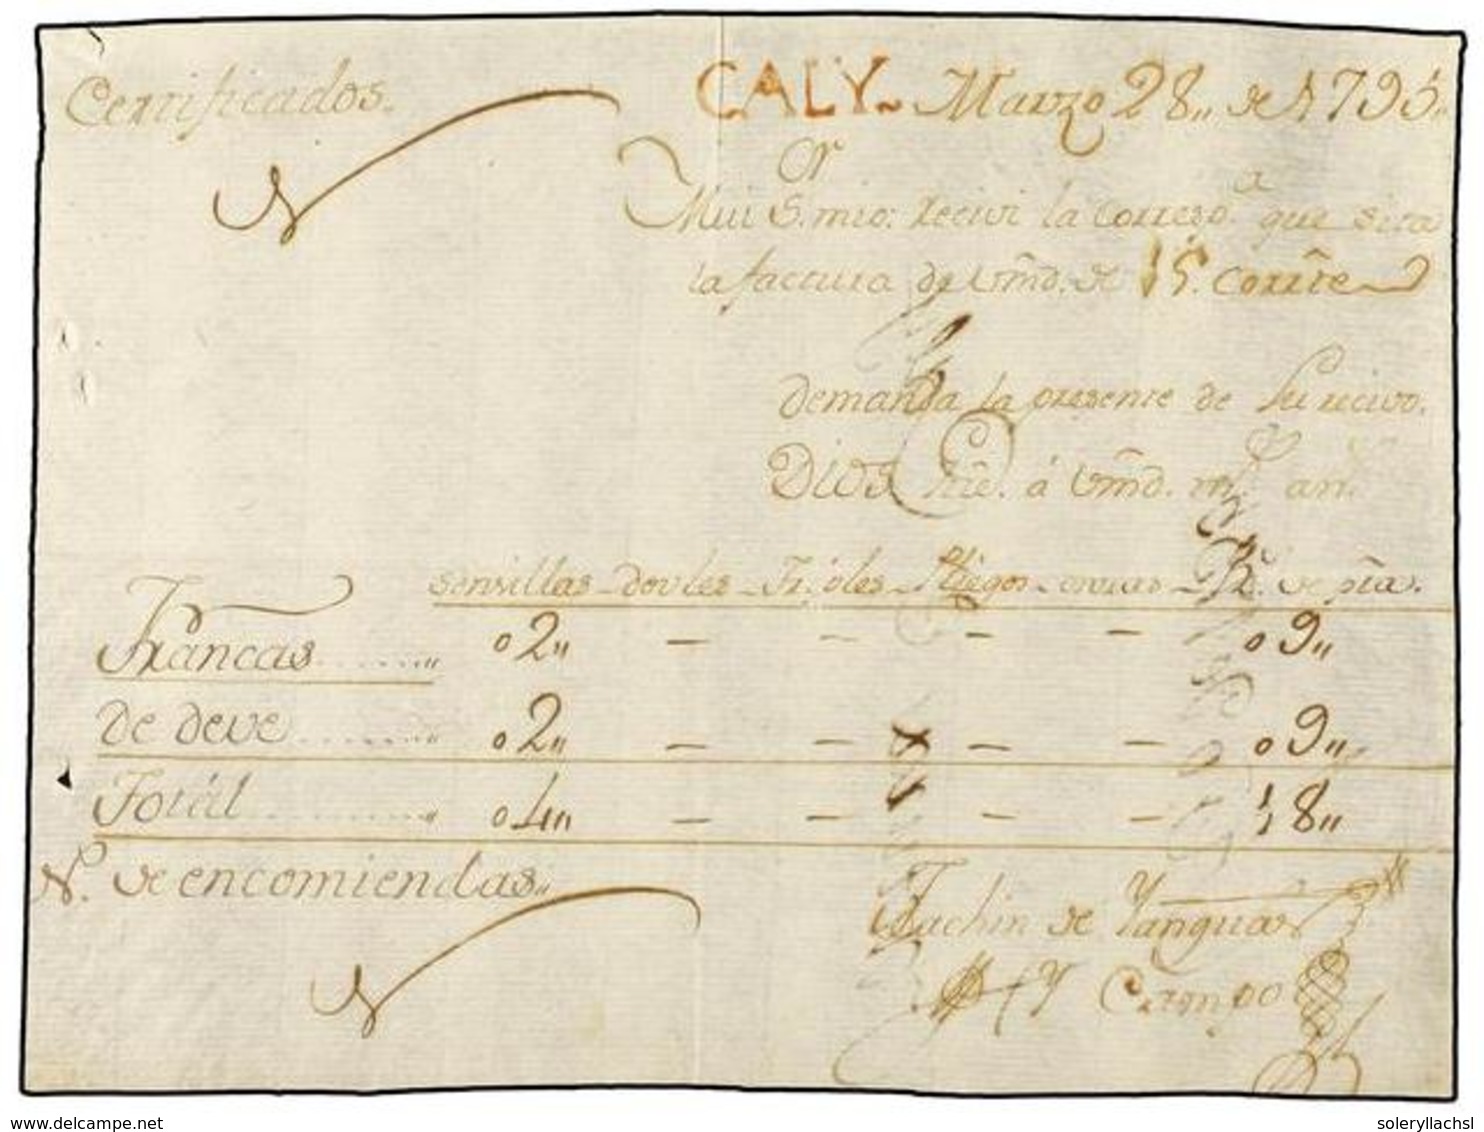 Certificados.
CALY. Marzo 28,, de 1795,,
or
Mui S. mio: recivi la correspo.a que sita
la factura de Vmd. de 15. corrte
demanda la presente de su recivo.
Dios gue. á Vmd. ms. an.
sensillas - dovles - Triples - Pliegos - onzas - de pta.
Francas........,, 02,, — — — — 09,,
de deve........,, 02,, — — — — 09,,
Totál........,, 04,, — — — — 18,,
N. de encomiendas,,
Juchin de Yanguas
y Campo
www.delcampe.net
soleryllachsl